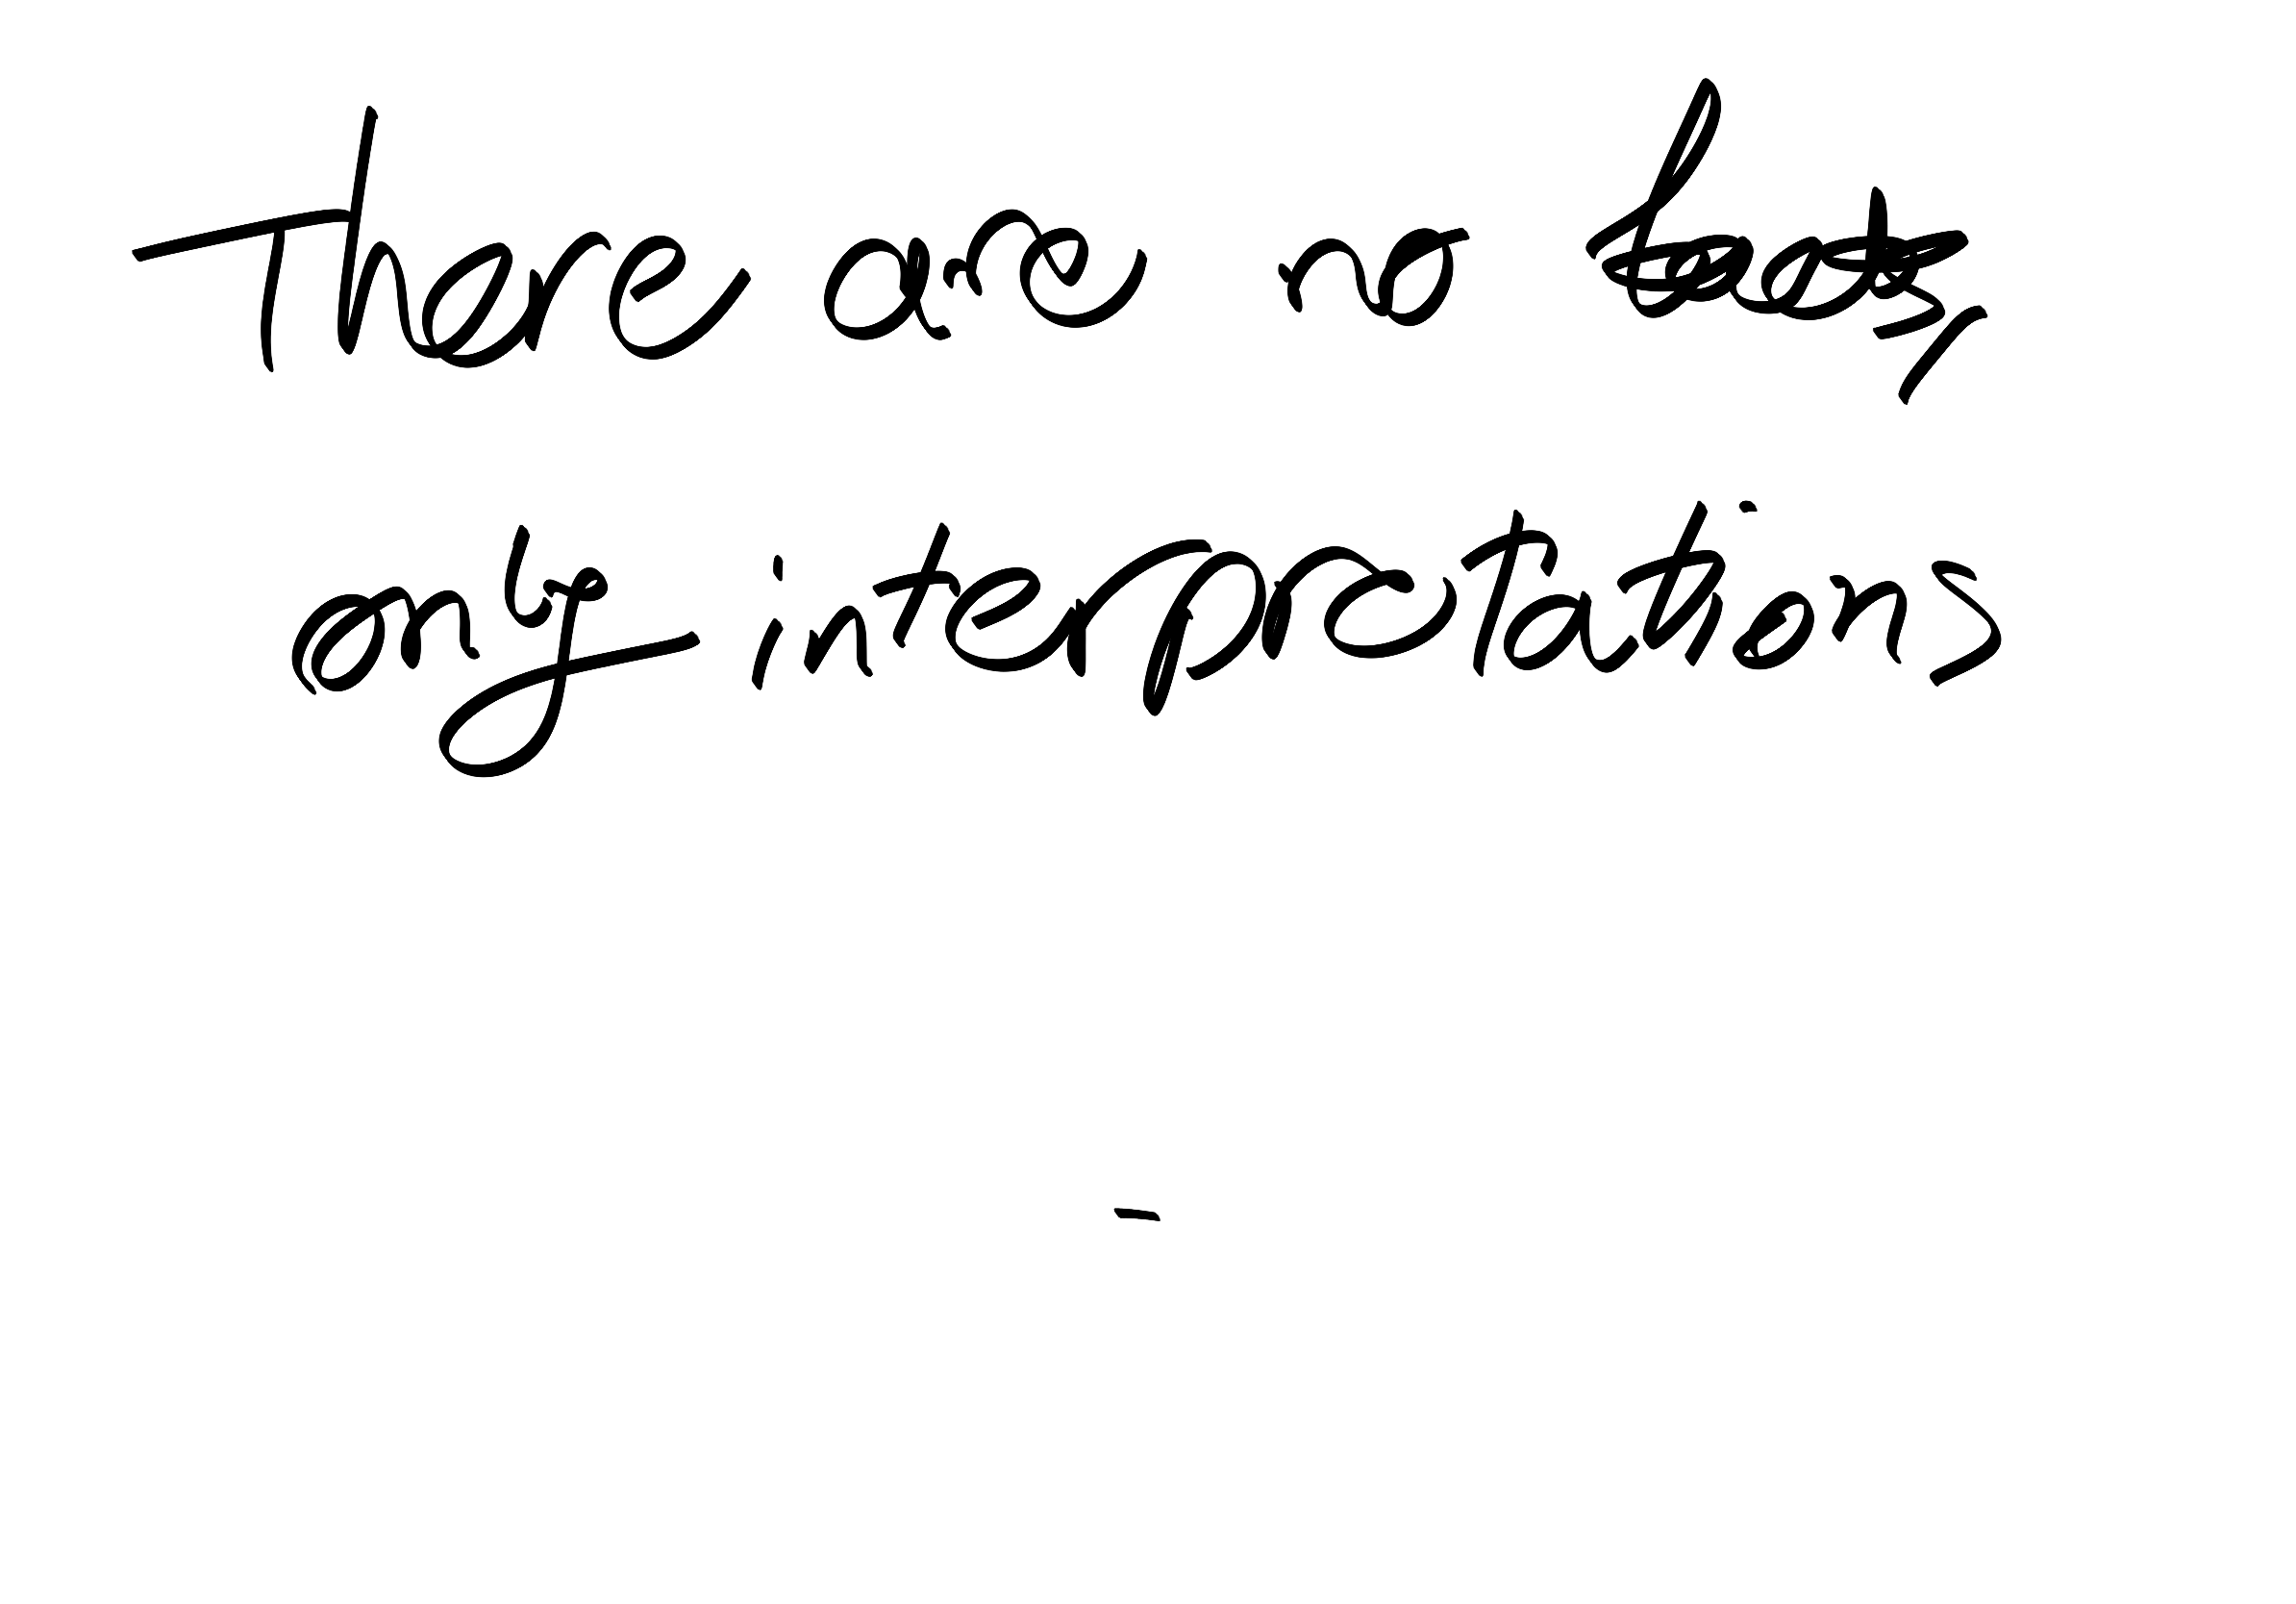 There are no facts,
only interpretations